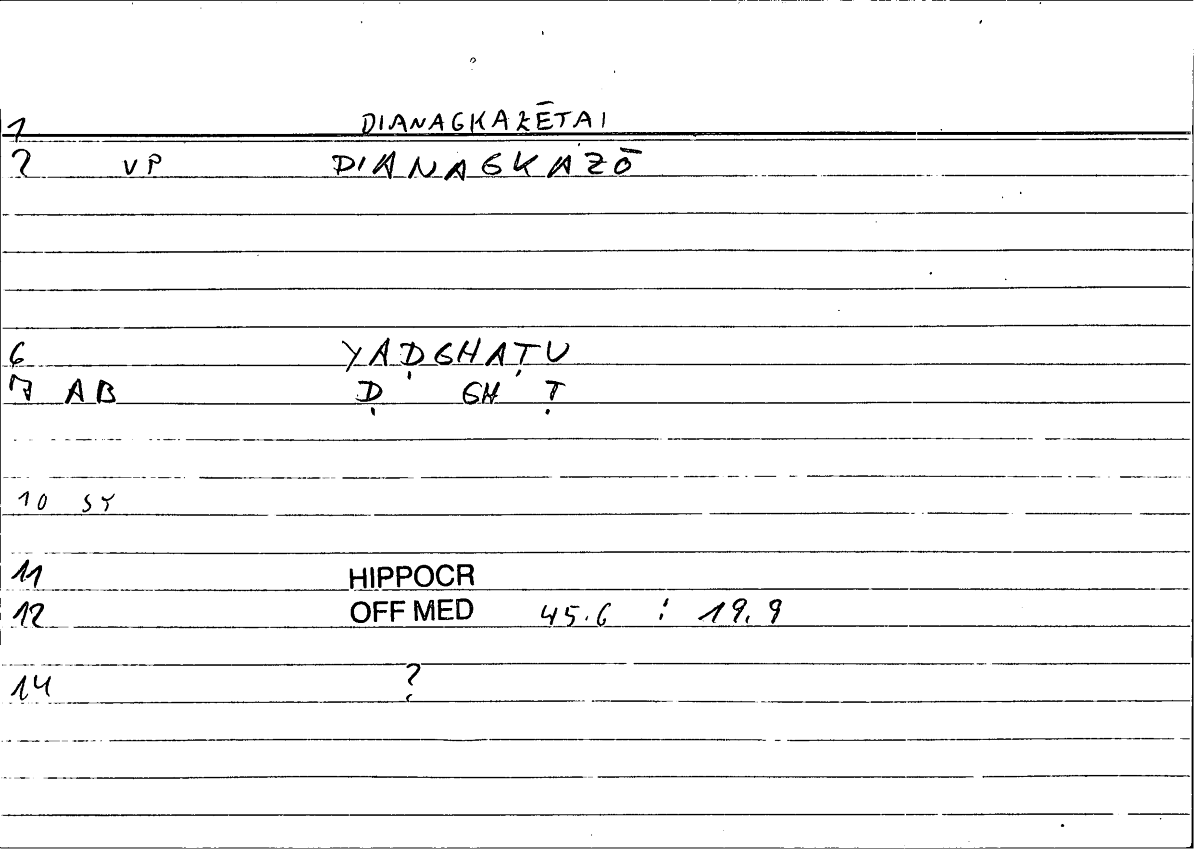 1 DIANAGKAZĒTAI
2 VP DIANAGKAZŌ
6 YAḌGHAṬU
7 AB Ḍ GH Ṭ
10 SY
11 HIPPOCR
12 OFF MED 45.6 : 19.9
14 ?